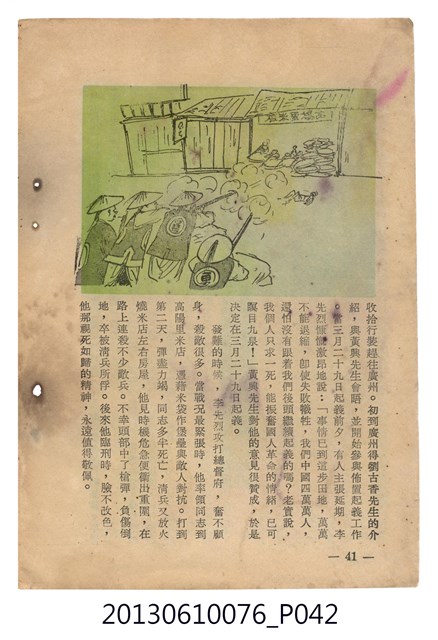 收拾行裝趕往廣州。初到廣州得劉古香先生的介
紹，與黃興先生會晤，並開始參與佈置起義工作
。當三月二十九日起義前夕，有人主張延期，李
先烈慷慨激昂地說：「事情已到這步田地，萬萬
不能退縮，卽使失敗犧牲，我們中國四萬萬人，
還怕沒有跟着我們後頭繼續起義的嗎？老實說，
我個人只求一死，能振奮國人革命的情緒，已可
瞑目九泉！」黃興先生對他的意見很贊成，於是
決定在三月二十九日起義。
發難的時候，李先烈攻打總督府，奮不顧
身，殺敵很多。當戰況最緊張時，他率領同志到
高陽里米店，憑藉米袋作堡壘與敵人對抗。打到
第二天，彈盡力竭，同志多半死亡，清兵又放火
燒米店左右房屋，他見時機危急便衝出重圍，在
路上連殺不少敵兵。不幸頭部中了槍彈，負傷倒
地，卒被清兵所俘。後來他臨刑時，臉不改色，
他那視死如歸的精神，永遠值得敬佩。
— 41 —
20130610076_P042